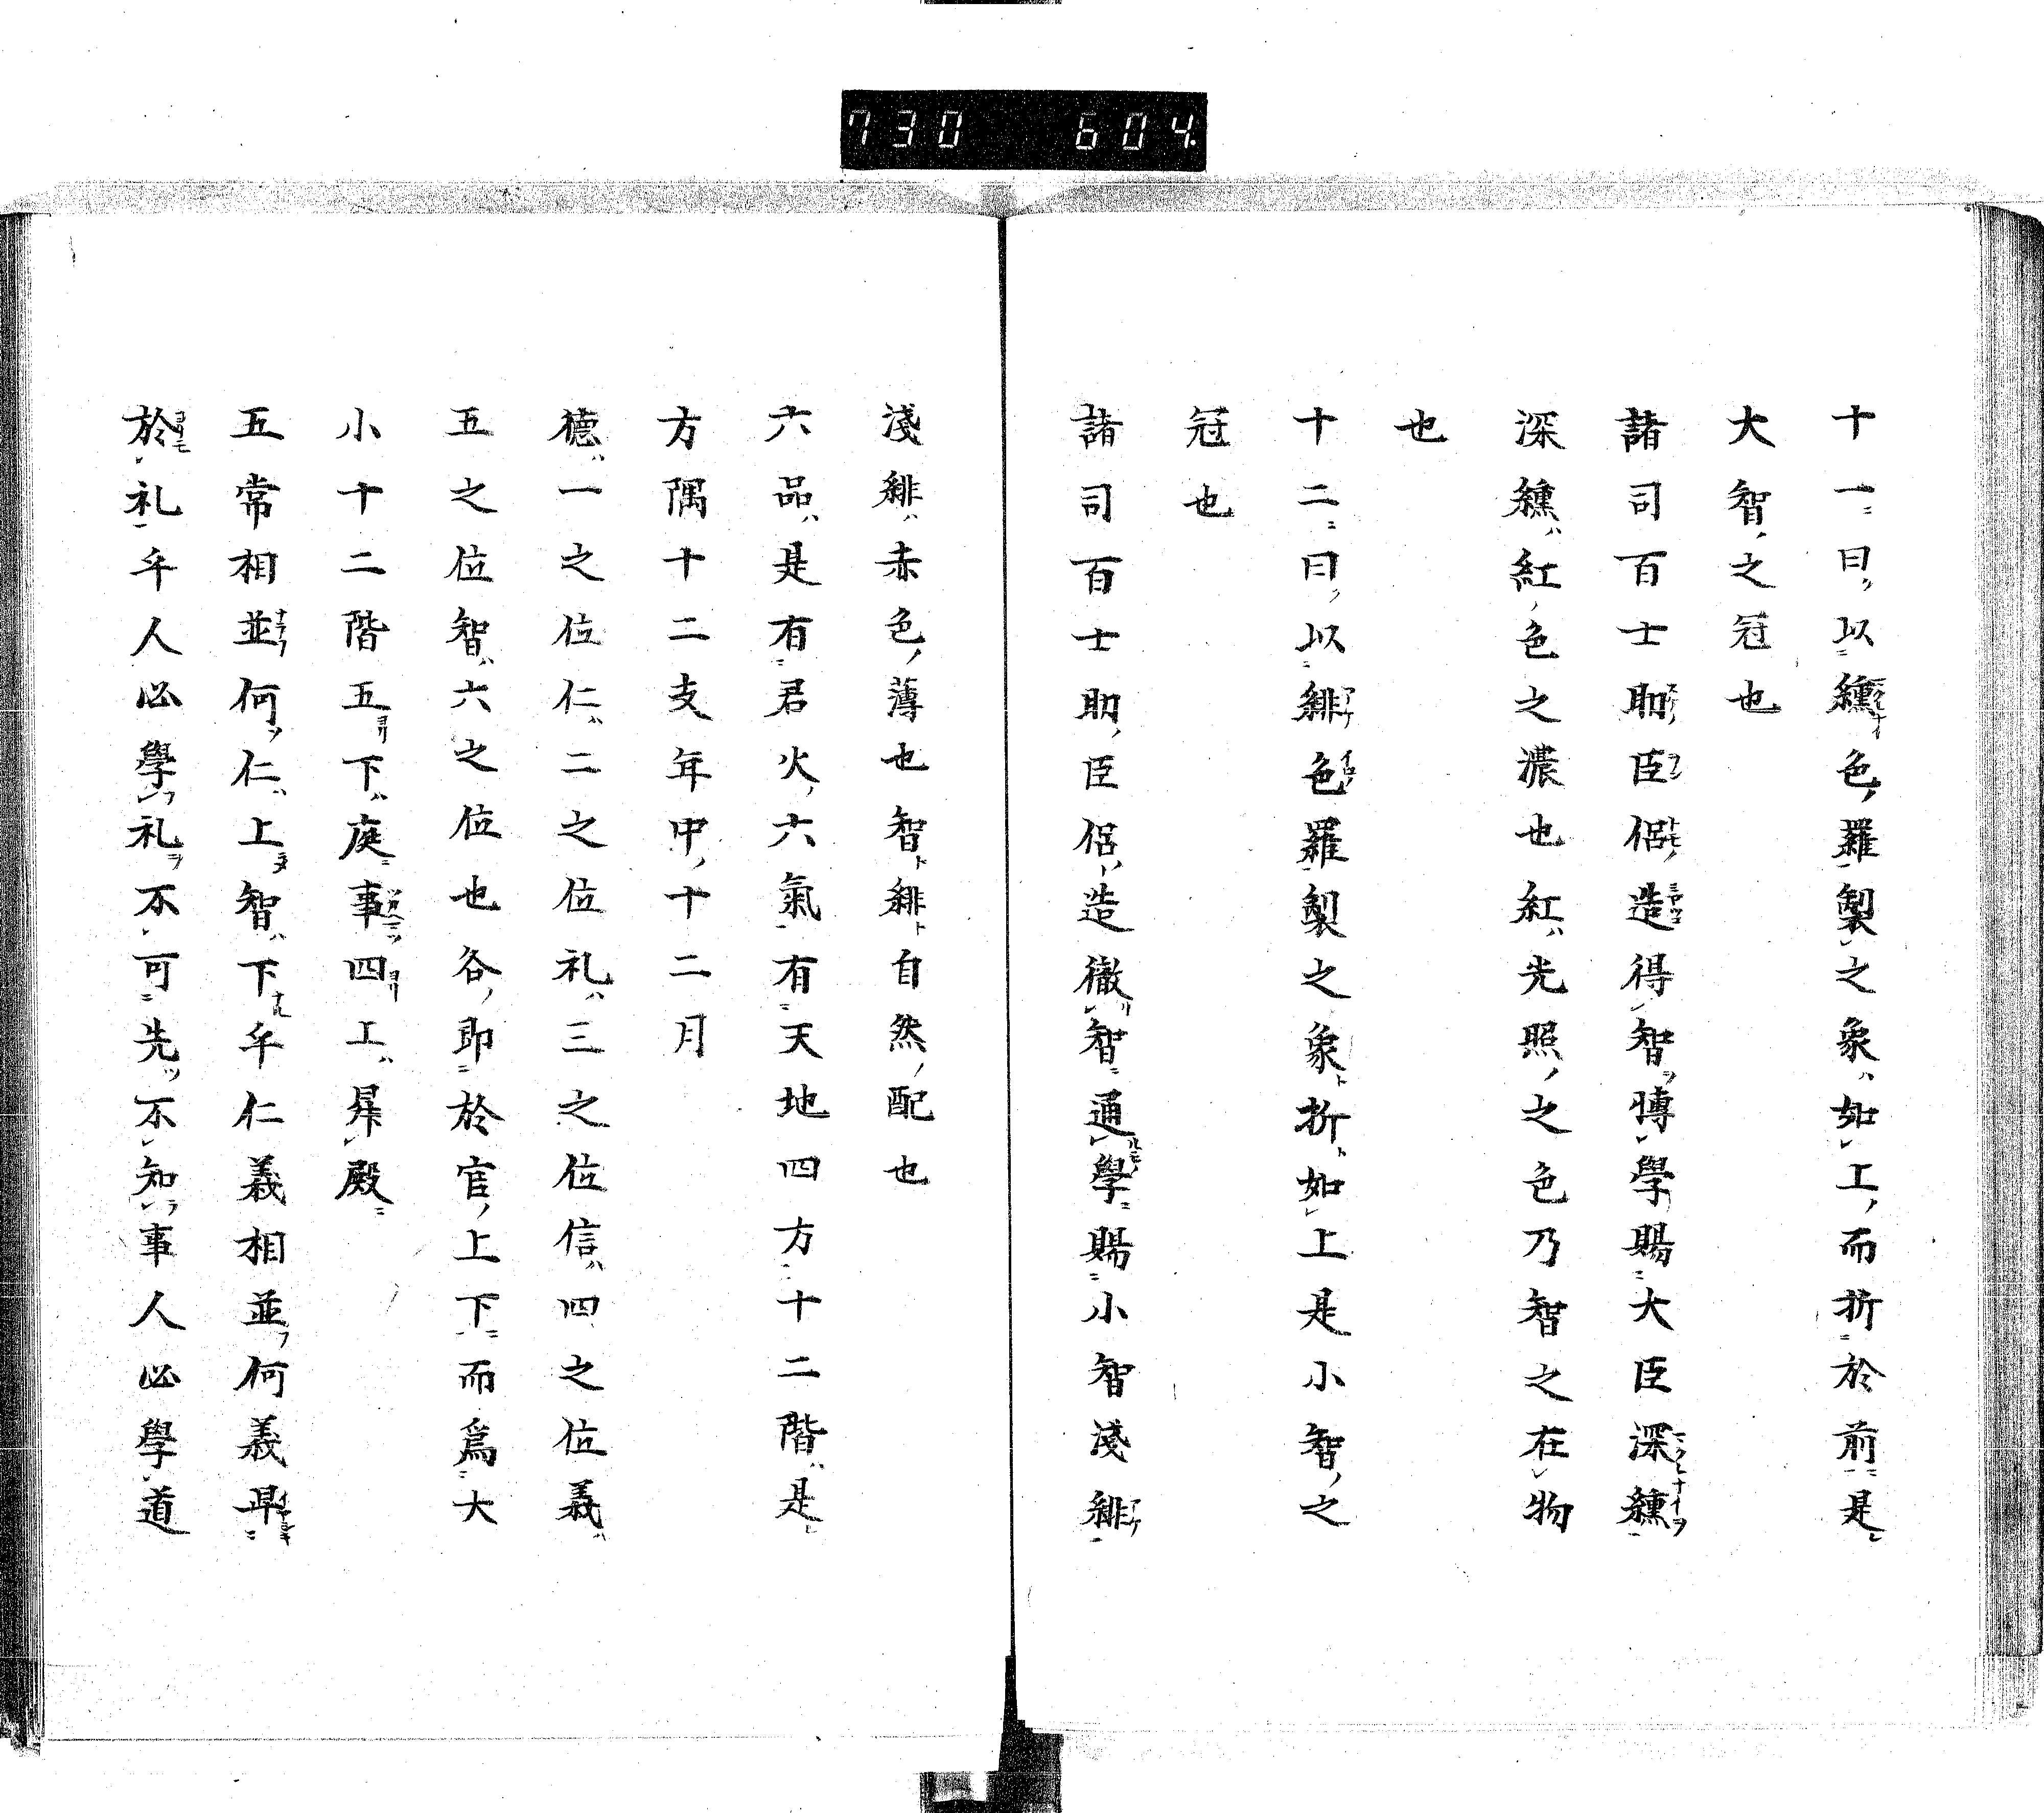 730 604.
十一曰以纁色羅製之象如工而折於前是
大智之冠也
諸司百士助臣侶造得智博學賜大臣深纁
深纁紅色之濃也紅先照之色乃智之在物
也
十二曰以緋色羅製之象折如上是小智之
冠也
諸司百士助臣侶造徹智通學賜小智淺緋
淺緋赤色薄也智緋自然配也
六品是有君火六氣有天地四方十二階是
方隅十二支年中十二月
德一之位仁二之位礼三之位信四之位義
五之位智六之位也各即於官上下而爲大
小十二階五下庭事四工昇殿
五常相並何仁上智下乎仁義相並何義早
於礼乎人必學礼不可先不知事人必學道